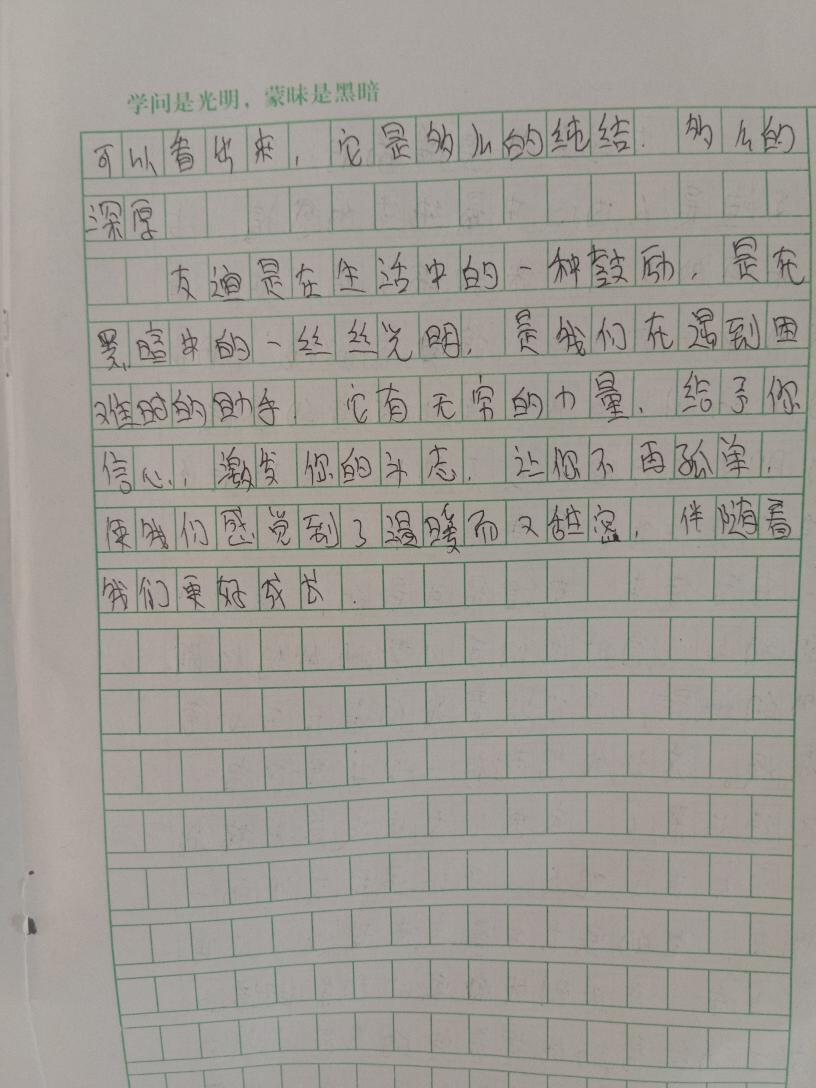 学问是光明，蒙昧是黑暗
可以看出来，它是多么的纯洁.多么的
深厚
友谊是在生活中的一种鼓励，是在
黑暗中的一丝丝光明，是我们在遇到困
难时的助手.它有无穷的力量，给了你
信心，激发你的斗志，让你不再孤单，
使我们感觉到了温暖而又甜密，伴随着
我们更好成长.